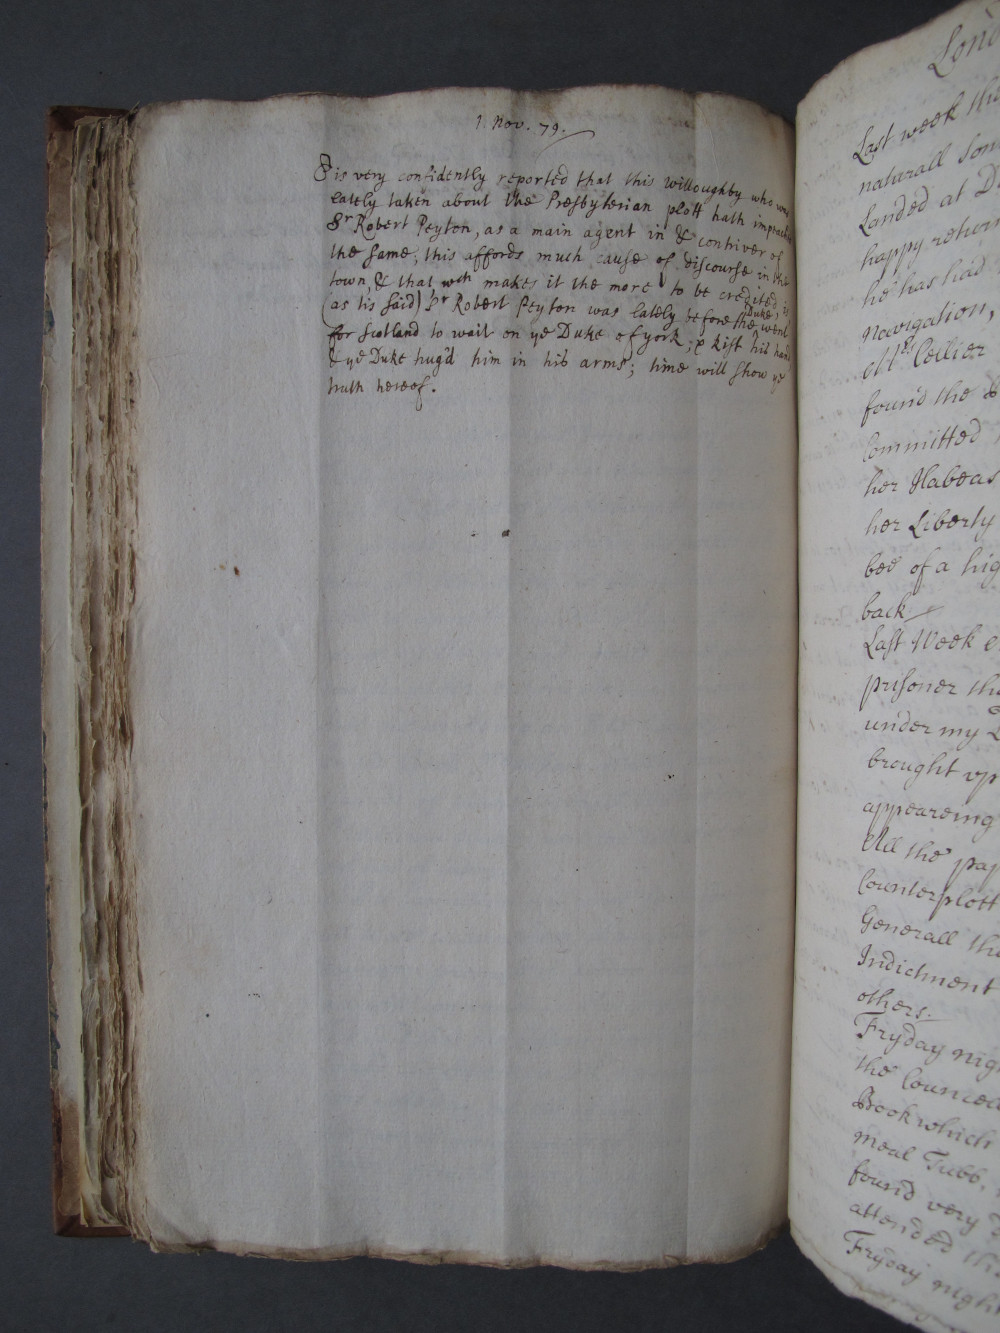 1. Nov. 79.
Tis very confidently reported that this willoughby who was
lately taken about the Presbyterian plott hath impeacht
Sr Robert Peyton, as a main agent in & contriver of
the same; this affords much cause of discourse in the
town, & that wch makes it the more to be credited, is
(as tis said) Sr Robert Peyton was lately before the Duke went
for Scotland to wait on ye Duke of york; & kist his hand,
& ye Duke hug'd him in his arms; time will show ye
truth hereof.
Lond
Last week the
naturall Son
Landed at D
happy return
he has had
Navigation,
Mrs Cellier
found the B
Committed
her Habeas
her Liberty
bee of a hig
back
Last Week
prisoner tha
under my L
brought vp
appeareing
All the pap
Counterplott
Generall tha
Indictment
others.
Fryday nigh
the Councell
Book which
meal Tubb,
found very
attended the
Fryday night